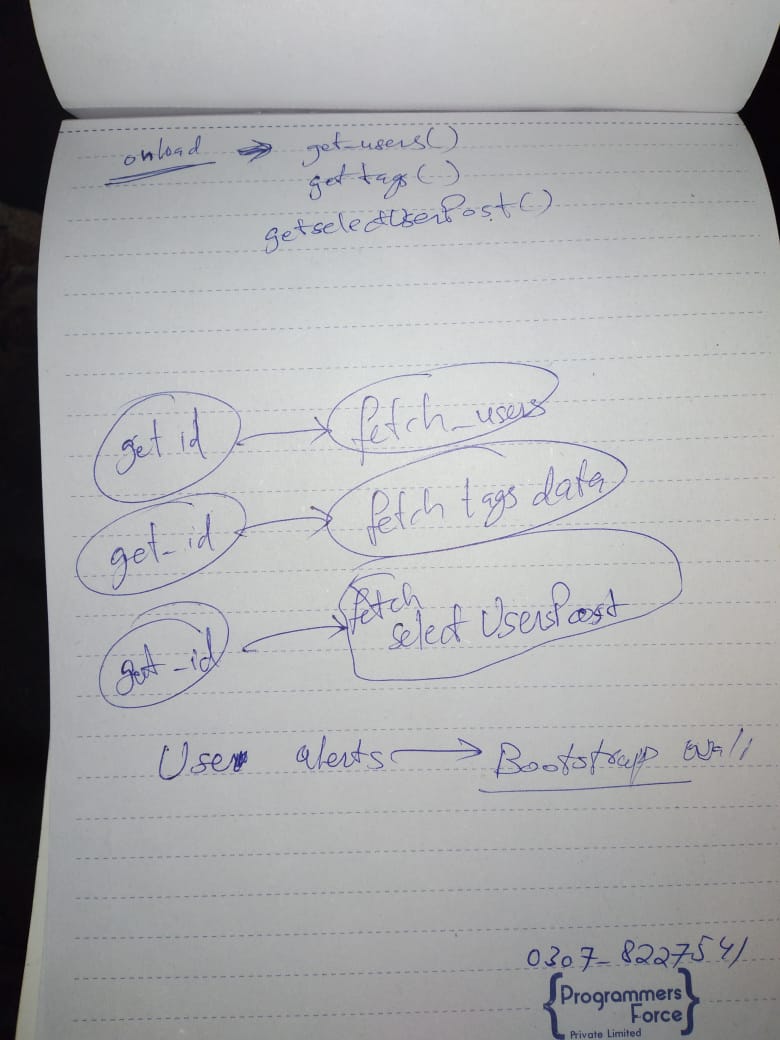 onload → get-users()
get tags()
getselectUserPost()
get id → fetch_users
get_id → fetch tags data
get_id → fetch
select UsersPost
User alerts → Bootstrapp wali
0307-8227541
{Programmers
Force}
Private Limited